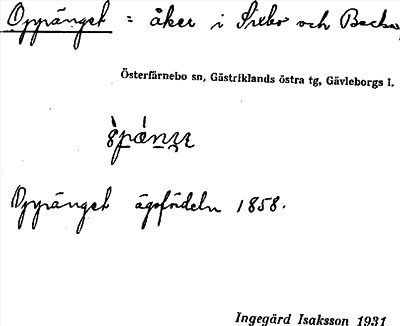 Oppränget = åker i Sixbo och Backa,
Österfärnebo sn, Gästriklands östra tg, Gävleborgs l.
Oppränget ägofördeln 1858.
Ingegärd Isaksson 1931